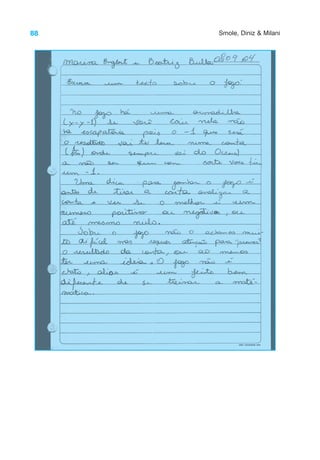 88
Smole, Diniz & Milani
Marina Byfort e Beatriz Bulla 08 09 04
Escreva um texto sobre o jogo:
No jogo há uma armadilha
(x, x, -1) se você cair nela não
há escapatória pois o -1 que será
o resultado vai te levar numa conta
onde sempre vai dar
a não ser que com sorte você tire
um -1.
Uma dica para ganhar o jogo é
antes de tirar a conta analizar a
conta e ver se o melhor é um
número positivo ou negativo, ou
até mesmo nulo.
Sobre o jogo não o achamos mui-
to difícil mas requer atenção para "prever"
o resultado da conta, ou ao menos
ter uma idéia. O jogo não é
chato, aliás é um jeito bem
diferente de se treinar a mate-
mática.